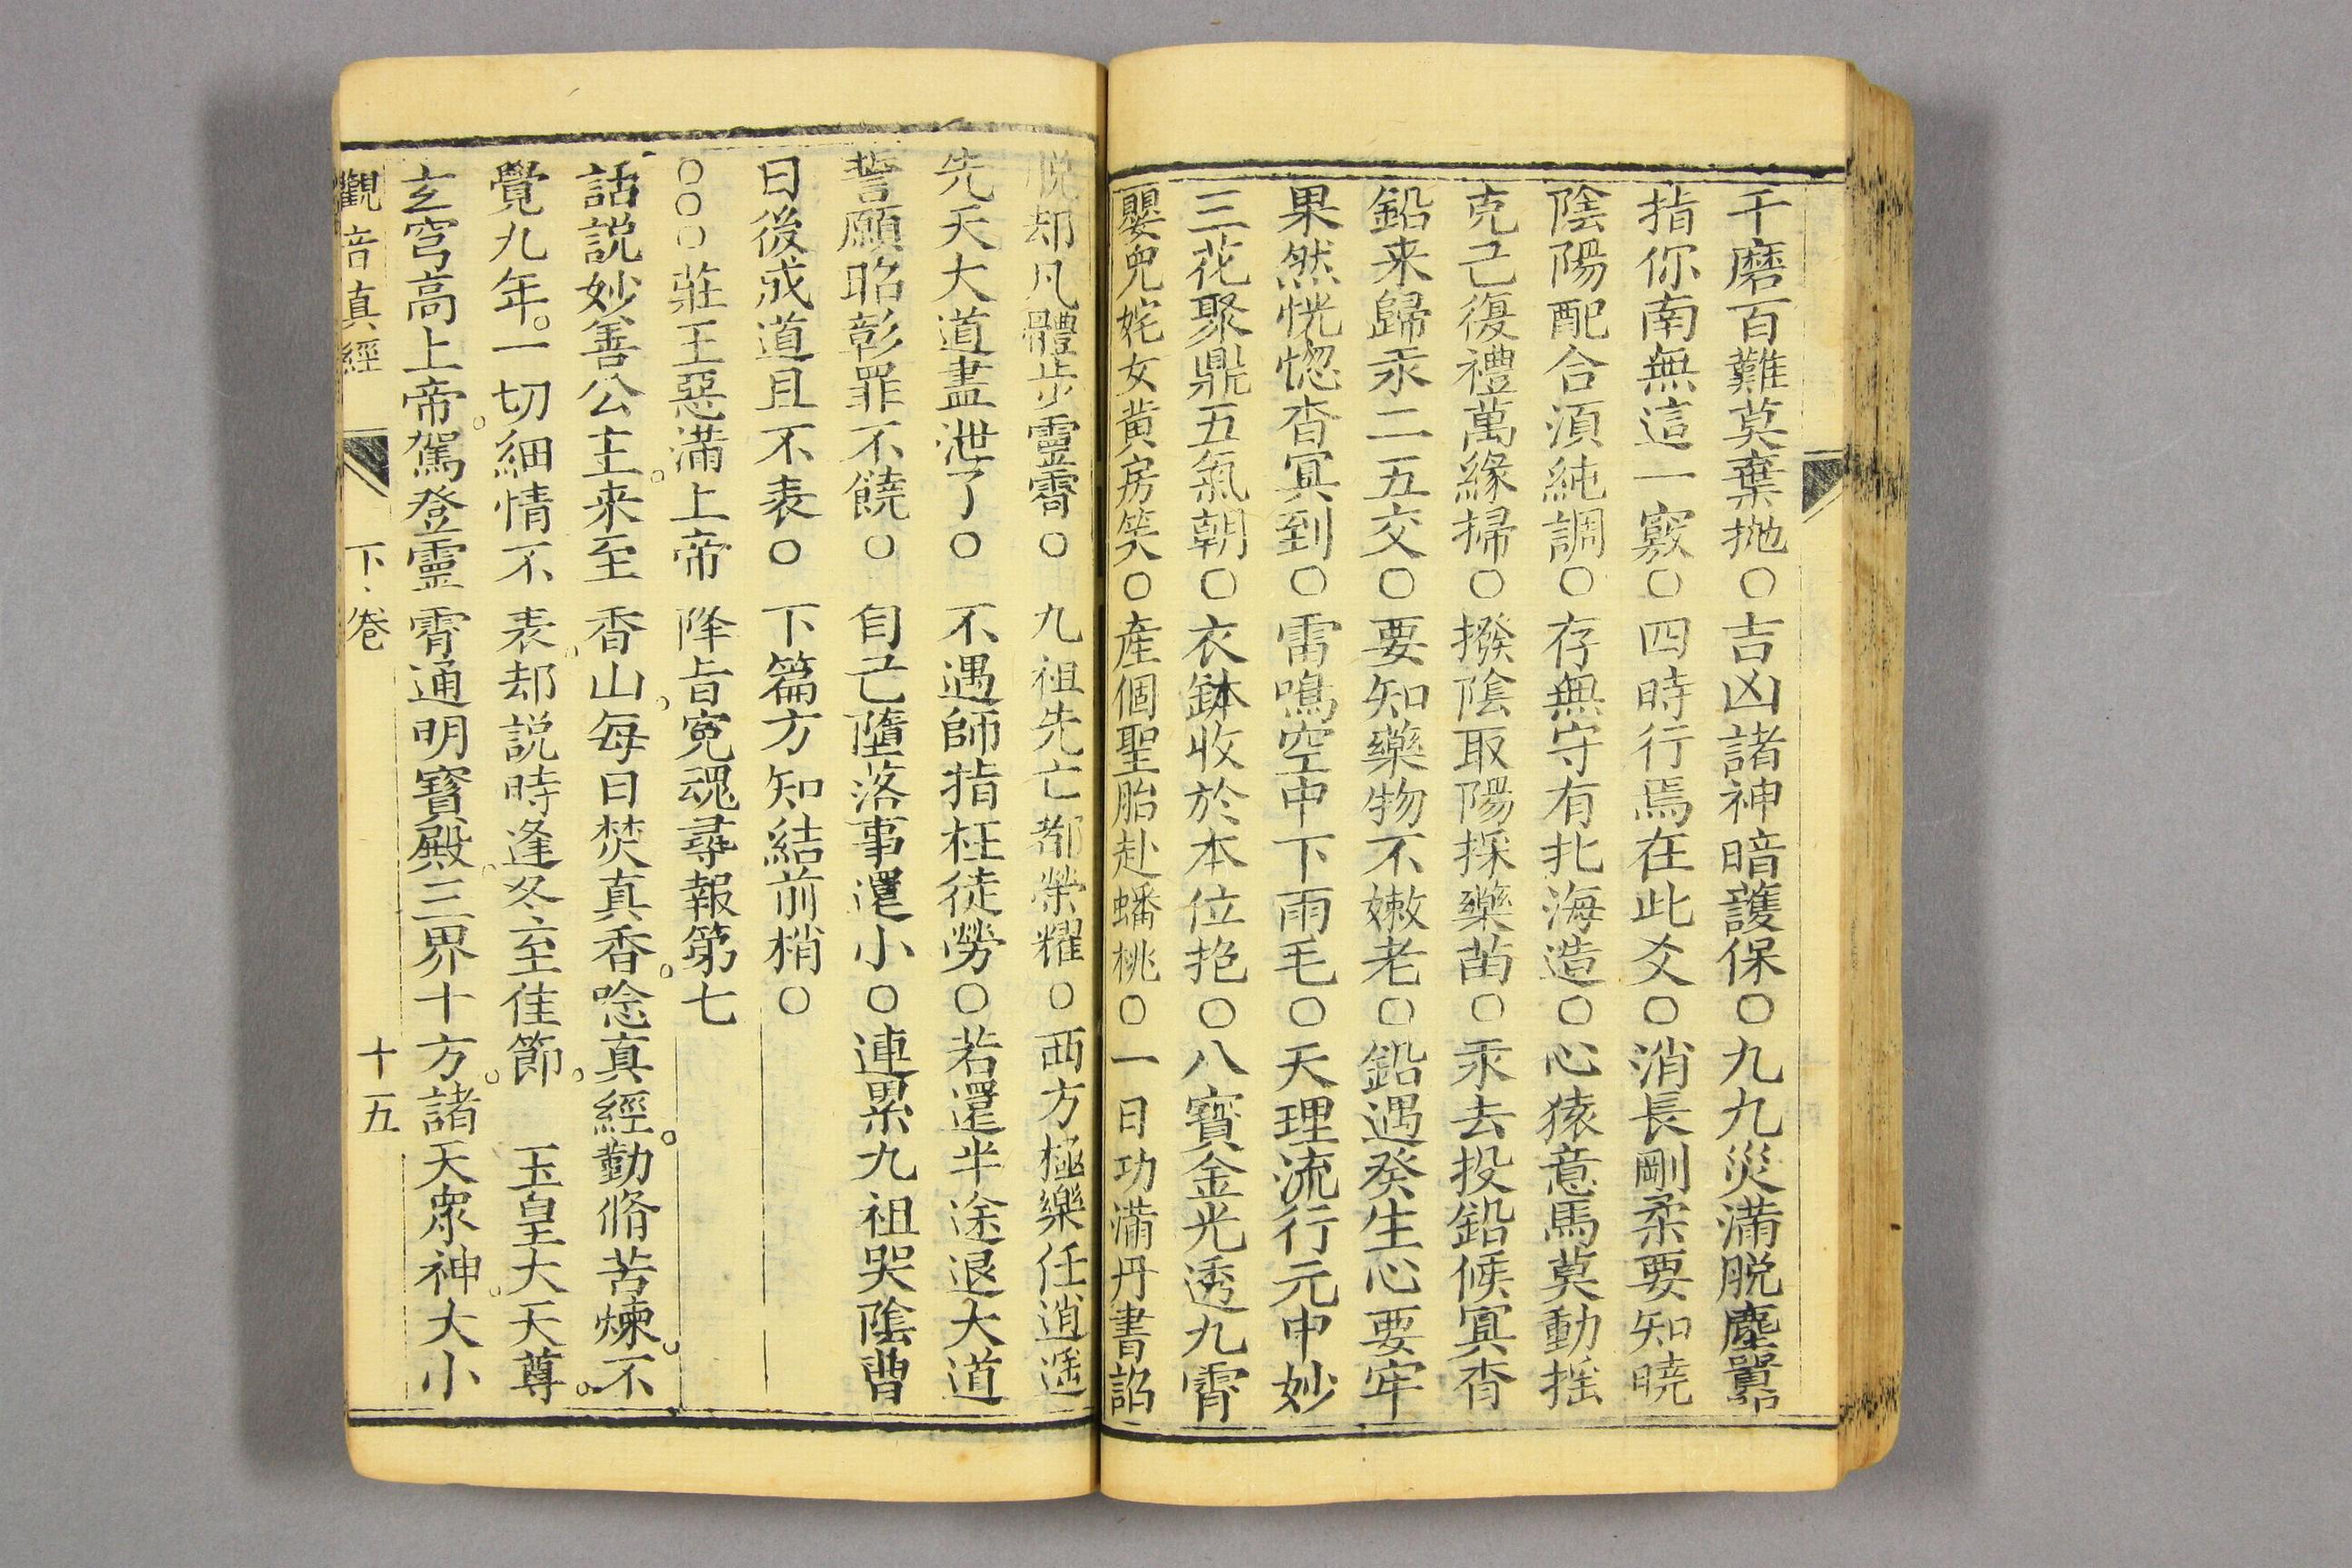 千磨百難莫棄拋○吉凶諸神暗護保○九九災滿脫塵囂
指你南無這一竅○四時行焉在此爻○消長剛柔要知曉
陰陽配合須純調○存無守有北海造○心猿意馬莫動搖
克己復禮萬緣掃○撥陰取陽採藥苗○汞去投鉛候冥杳
鉛来歸汞二五交○要知藥物不嫩老○鉛遇癸生心要牢
果然恍惚杳冥到○雷鳴空中下雨毛○天理流行元中妙
三花聚鼎五氣朝○衣鉢收於本位抱○八寳金光透九霄
嬰兒姹女黄房笑○産個聖胎赴蟠桃○一日功滿丹書詔
脫却凡體步靈霄○九祖先亡都榮耀○西方極樂任逍遥
先天大道盡泄了○不遇師指枉徒勞○若還半途退大道
誓願昭彰罪不饒○自己墮落事還小○連累九祖哭陰曹
日後成道且不表○下篇方知結前梢○
○○○莊王惡滿上帝降旨寃魂尋報第七
話説妙善公主来至香山每日焚真香唸真經勤脩苦煉不
覺九年一切細情不表却説時逢冬至佳節玉皇大天尊
玄穹高上帝駕登靈霄通明寳殿三界十方諸天眾神大小
觀音真經 下卷 十五